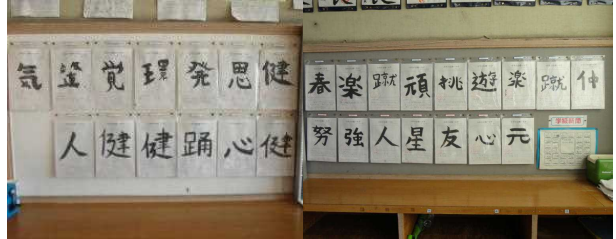 気 盗 覚 環 発 思 健
人 健 健 踊 心 健
春 楽 蹴 頑 挑 遊 楽 蹴 仲
努 強 人 星 友 心 元